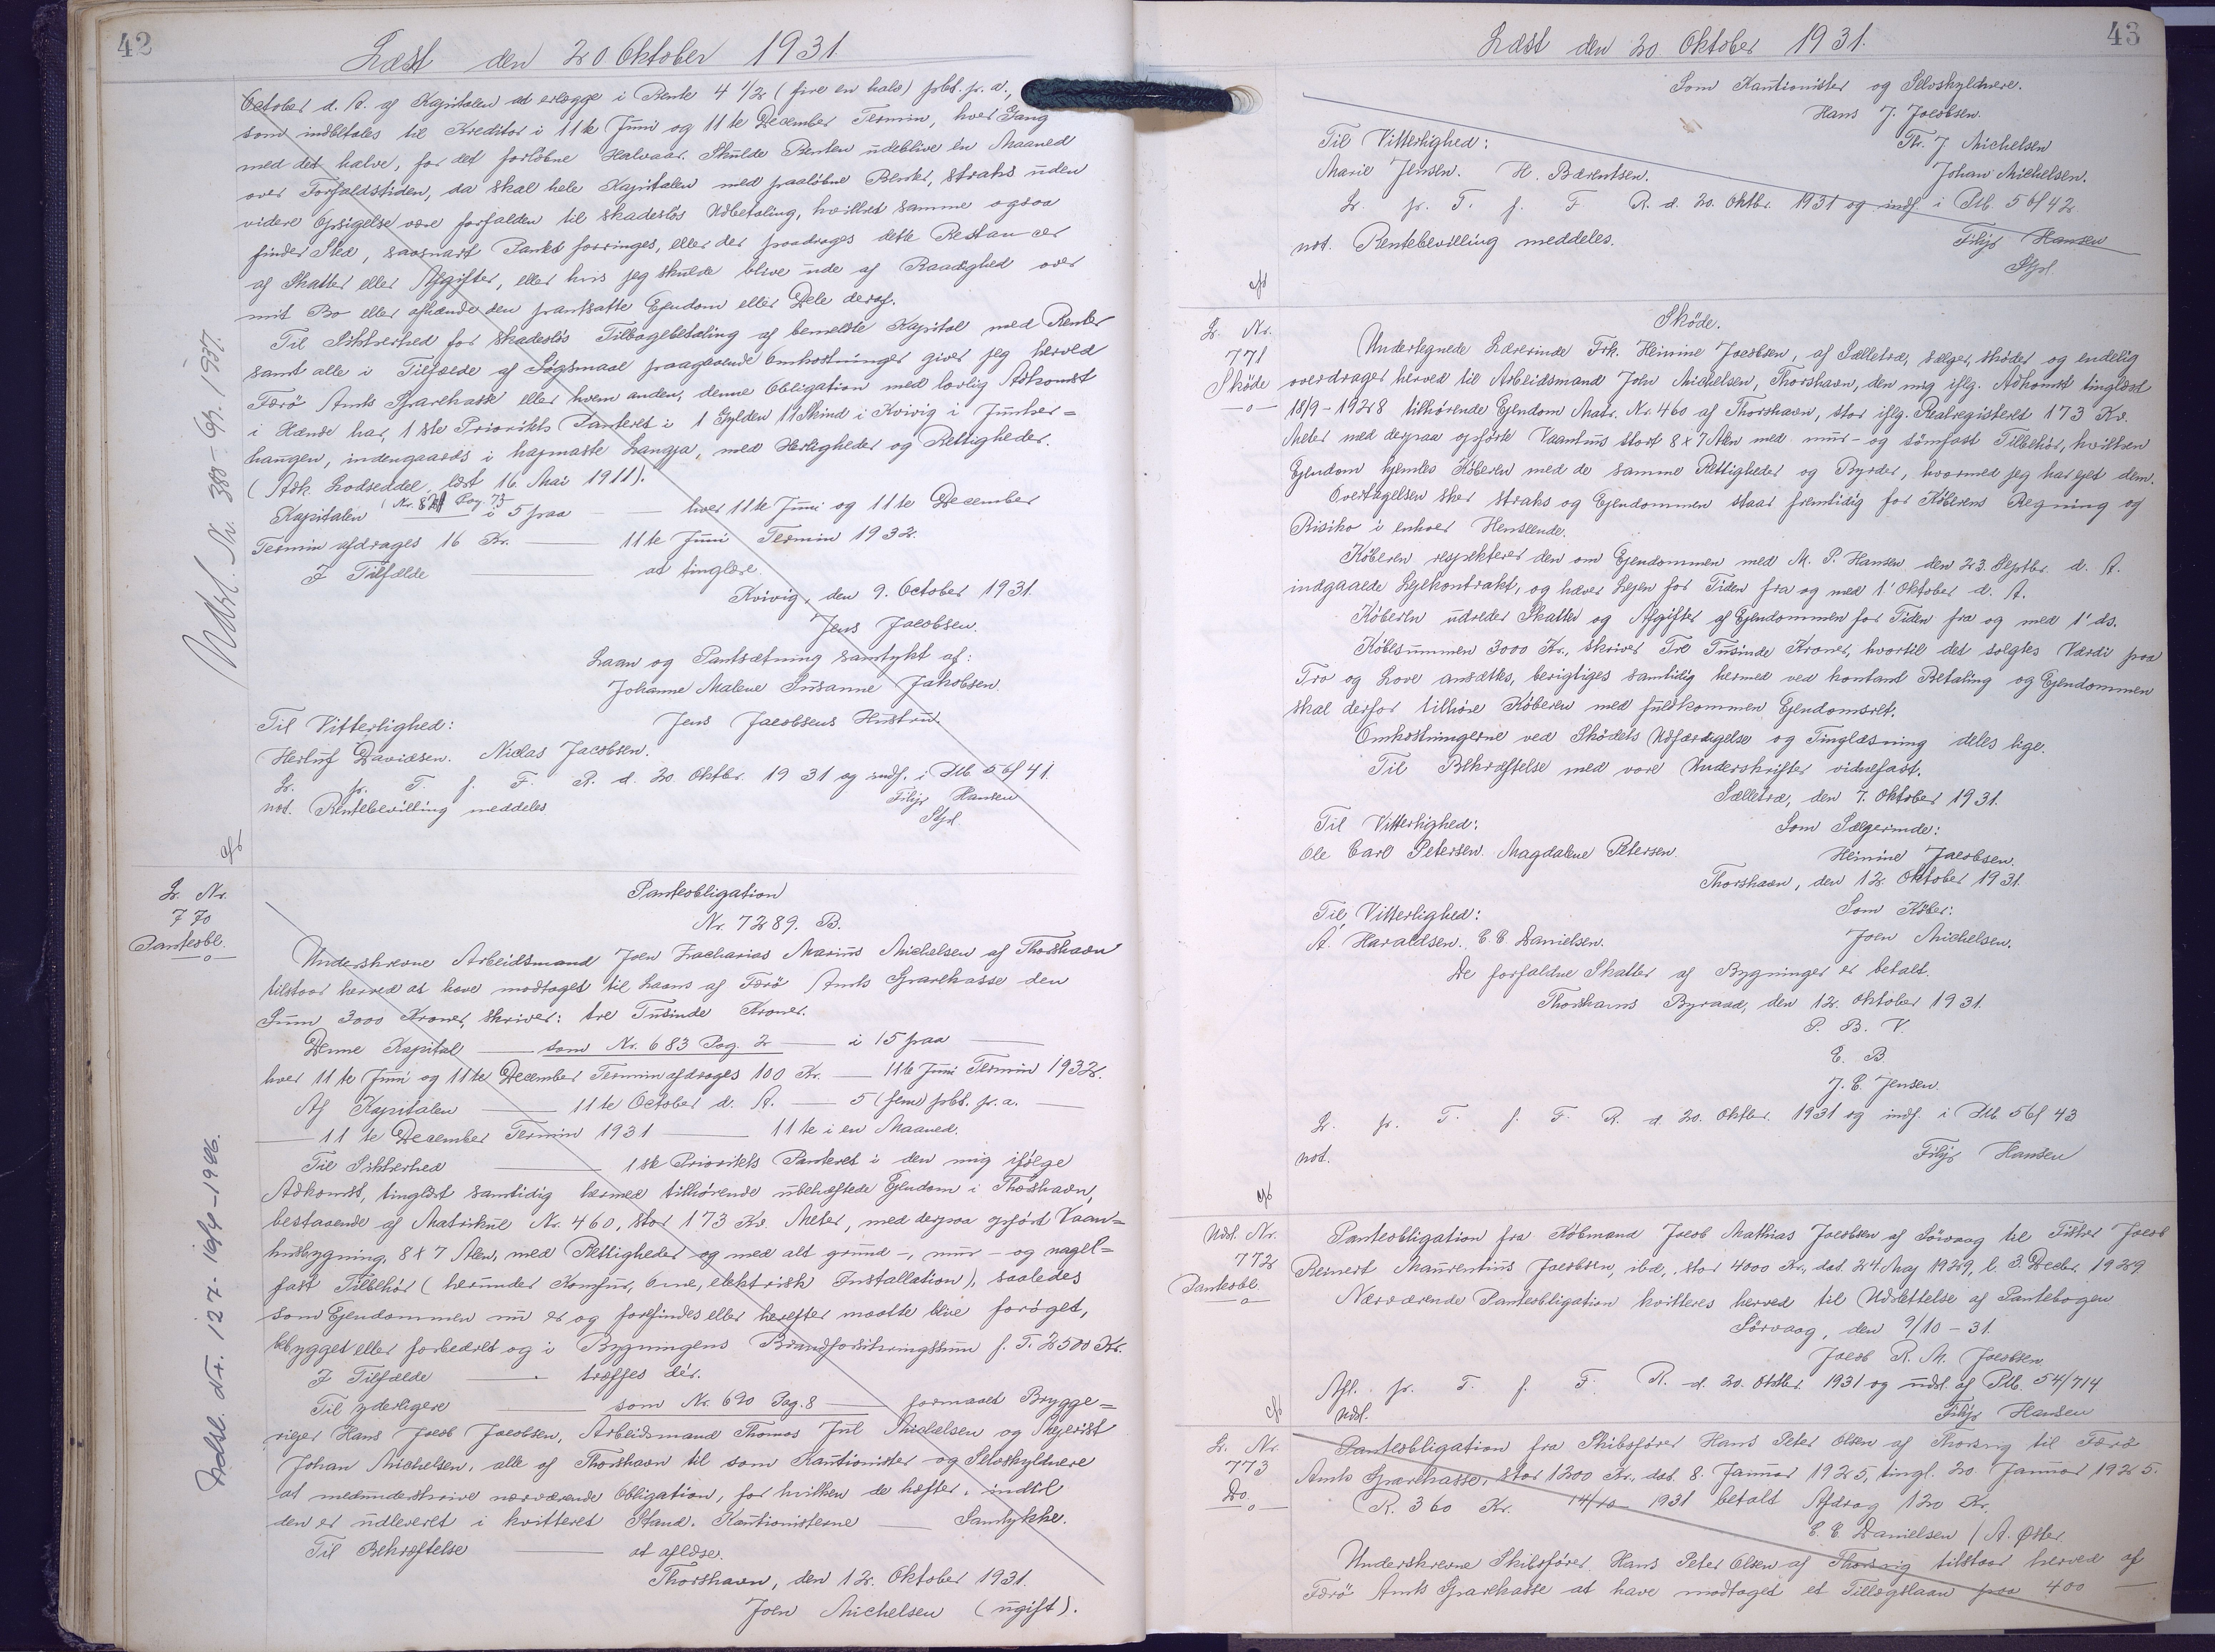 42
Læst den 20 Oktober 1931.
October d. A. af Kapitalen at erlægge i Rente 4 1/2 (fire en halv) pct. pr. a.,
som indbetales til Kreditor i 11te Juni og 11te December Termin, hver Gang
med det halve, for det forløbne Halvaar. Skulde Renten udeblive en Maaned
over Forfaldstiden, da skal hele Kapitalen med paaløbne Renter, straks uden
videre Opsigelse være forfalden til skadesløs Udbetaling, hvilket samme ogsaa
finder Sted, saasnart Pantet forringes, eller der paadrages dette Restancer
af Skatter eller Afgifter, eller hvis jeg skulde blive ude af Raadighed over
mit Bo eller afhænde den pantsatte Ejendom eller Dele deraf.
Til Sikkerhed for skadesløs Tilbagebetaling af bemeldte Kapital med Renter
samt alle i Tilfælde af Søgsmaal paagaaende Omkostninger giver jeg herved
Færø Amts Sparekasse eller hvem anden, denne Obligation med lovlig Adkomst
i Hænde har, 1ste Prioritets Panteret i 1 Gylden 11 Skind i Kvivig i Junker=
haugen, indengaards i hapmaste Langja, med Herligheder og Rettigheder.
(Adk. Lodseddel, læst 16. Mai 1911).
Kapitalen (Nr. 821 Pag. 75 i 5 paa — hver 11te Juni og 11te December
Termin afdrages 16 Kr. — 11te Juni Termin 1932.
I Tilfælde — at tinglæse.
Kvivig, den 9. October 1931.
Jens Jacobsen.
Laan og Pantsætning samtykt af:
Johanne Malene Susanne Jakobsen.
Til Vitterlighed: Jens Jacobsens Hustru.
Herluf Davidsen. Niclas Jacobsen.
Lr. pr. T. f. F. R. d. 20. Oktbr. 1931 og indf. i Ptb. 56/41.
not. Rentebevilling meddeles
Filip Hansen
Stpl.
Udsl. Nr. 388 - 6/4. 1937.
Lr. Nr.
770
Panteobl.
Panteobligation
Nr. 7289. B.
Underskrevne Arbeidsmand Joen Zacharias Marius Michelsen af Thorshavn
tilstaar herved at have modtaget til Laans af Færø Amts Sparekasse den
Sum 3000 Kroner, skriver: tre Tusinde Kroner.
Denne Kapital — som Nr. 683 Pag. 2 — i 15 paa —
hver 11te Juni og 11te December Termin afdrages 100 Kr. — 11te Juni Termin 1932.
Af Kapitalen — 11te October d. A. — 5 (fem) pct. pr. a. —
— 11te December Termin 1931 — 11te i en Maaned.
Til Sikkerhed — 1ste Prioritets Panteret i den mig ifølge
Adkomst, tinglæst samtidig hermed tilhørende ubehæftede Ejendom i Thorshavn,
bestaaende af Matrikul Nr. 460, stor 173 Kv. Meter, med derpaa opført Vaan=
husbygning, 8 x 7 Alen, med Rettigheder og med alt grund-, mur- og nagel=
fast Tilbehør (herunder Komfur, Ovne, elektrisk Installation), saaledes
som Ejendommen nu er og forefindes eller herefter maatte blive forøget,
bebygget eller forbedret og i Bygningens Brandforsikringssum p. T. 2500 Kr.
I Tilfælde — træffes der.
Til yderligere — som Nr. 690 Pag. 8 — formaaet Brygge=
riejer Hans Jacob Jacobsen, Arbeidsmand Thomas Jul Michelsen og Mejerist
Johan Michelsen, alle af Thorshavn til som Kautionister og Selvskyldnere
at medunderskrive nærværende Obligation, for hvilken de hæfter, indtil
den er udleveret i kvitteret Stand. Kautionisterne — Samtykke.
Til Bekræftelse — at aflæse.
Thorshavn, den 12. Oktober 1931.
Joen Michelsen (ugift).
Udsl. Nr. 127 - 16/4 - 1946.
43
Læst den 20. Oktober 1931.
Som Kautionister og Selvskyldnere.
Hans J. Jacobsen.
Til Vitterlighed: Th. J. Michelsen
Marie Jensen. H. Bærentsen. Johan Michelsen.
Lr. pr. T. f. F. R. d. 20. Oktbr. 1931 og indf. i Ptb. 56/42
not. Rentebevilling meddeles. Filip Hansen
Stpl.
Lr. Nr.
771
Skøde
Skøde.
Undertegnede Lærerinde Frk. Heinine Jacobsen, af Sælletræ, sælger, skøder og endelig
overdrager herved til Arbeidsmand Joen Michelsen, Thorshavn, den mig iflg. Adkomst tinglæst
18/9 - 1928 tilhørende Ejendom Matr. Nr. 460 af Thorshavn, stor iflg. Realregisteret 173 Kv.
Meter med derpaa opførte Vaanhus stort 8 x 7 Alen med mur- og sømfast Tilbehør, hvilken
Ejendom hjemles Køberen med de samme Rettigheder og Byrder, hvormed jeg har ejet dem.
Overtagelsen sker straks og Ejendommen staar fremtidig for Køberens Regning og
Risiko i enhver Henseende.
Køberen respekterer den om Ejendommen med M. P. Hansen den 23. Septbr. d. A.
indgaaede Lejekontrakt, og hæver Lejen for Tiden fra og med 1' Oktober d. A.
Køberen udreder Skatter og Afgifter af Ejendommen for Tiden fra og med 1' ds.
Købesummen 3000 Kr., skriver Tre Tusinde Kroner, hvortil det solgtes Værdi paa
Tro og Love ansættes, berigtiges samtidig hermed ved kontant Betaling og Ejendommen
skal derfor tilhøre Køberen med fuldkommen Ejendomsret.
Omkostningerne ved Skødets Udfærdigelse og Tinglæsning deles lige.
Til Bekræftelse med vore Underskrifter vidnefast.
Sælletræ, den 7. Oktober 1931.
Til Vitterlighed: Som Sælgerinde:
Ole Carl Petersen. Magdalene Petersen. Heinine Jacobsen.
Thorshavn, den 12. Oktober 1931.
Til Vitterlighed: Som Køber:
A. Haraldsen. E. E. Danielsen. Joen Michelsen.
De forfaldne Skatter af Bygninger er betalt.
Thorshavns Byraad, den 12. Oktober 1931.
P. B. V.
E. B.
J. C. Jensen.
Lr. pr. T. f. F. R. d. 20. Oktbr. 1931 og indf. i Ptb. 56/43
not. Filip Hansen
Udsl. Nr.
772
Panteobl.
Panteobligation fra Købmand Jacob Mathias Jacobsen af Sörvaag til Fisker Jacob
Reinert Maurentius Jacobsen, ibd., stor 4000 Kr., dat. 24. Maj 1929, l. 3. Decbr. 1929
Nærværende Panteobligation kvitteres herved til Udslettelse af Pantebogen
Sörvaag, den 9/10 - 31.
Jacob R. M. Jacobsen
Afl. pr. T. f. F. R. d. 20. Oktbr. 1931 og udsl. af Ptb. 54/714
Udsl. Filip Hansen
Lr. Nr.
773
Do.
Panteobligation fra Skibsfører Hans Peter Olsen af Thorsvig til Færø
Amts Sparekasse, stor 1200 Kr., dat. 8. Januar 1925, tingl. 20. Januar 1925.
R. 360 Kr. 14/10 1931 betalt Afdrag 120 Kr.
E. E. Danielsen / A. Øster
Underskrevne Skibsfører Hans Peter Olsen af Thorsvig tilstaar herved af
Færø Amts Sparekasse at have modtaget et Tillægslaan paa 400 —